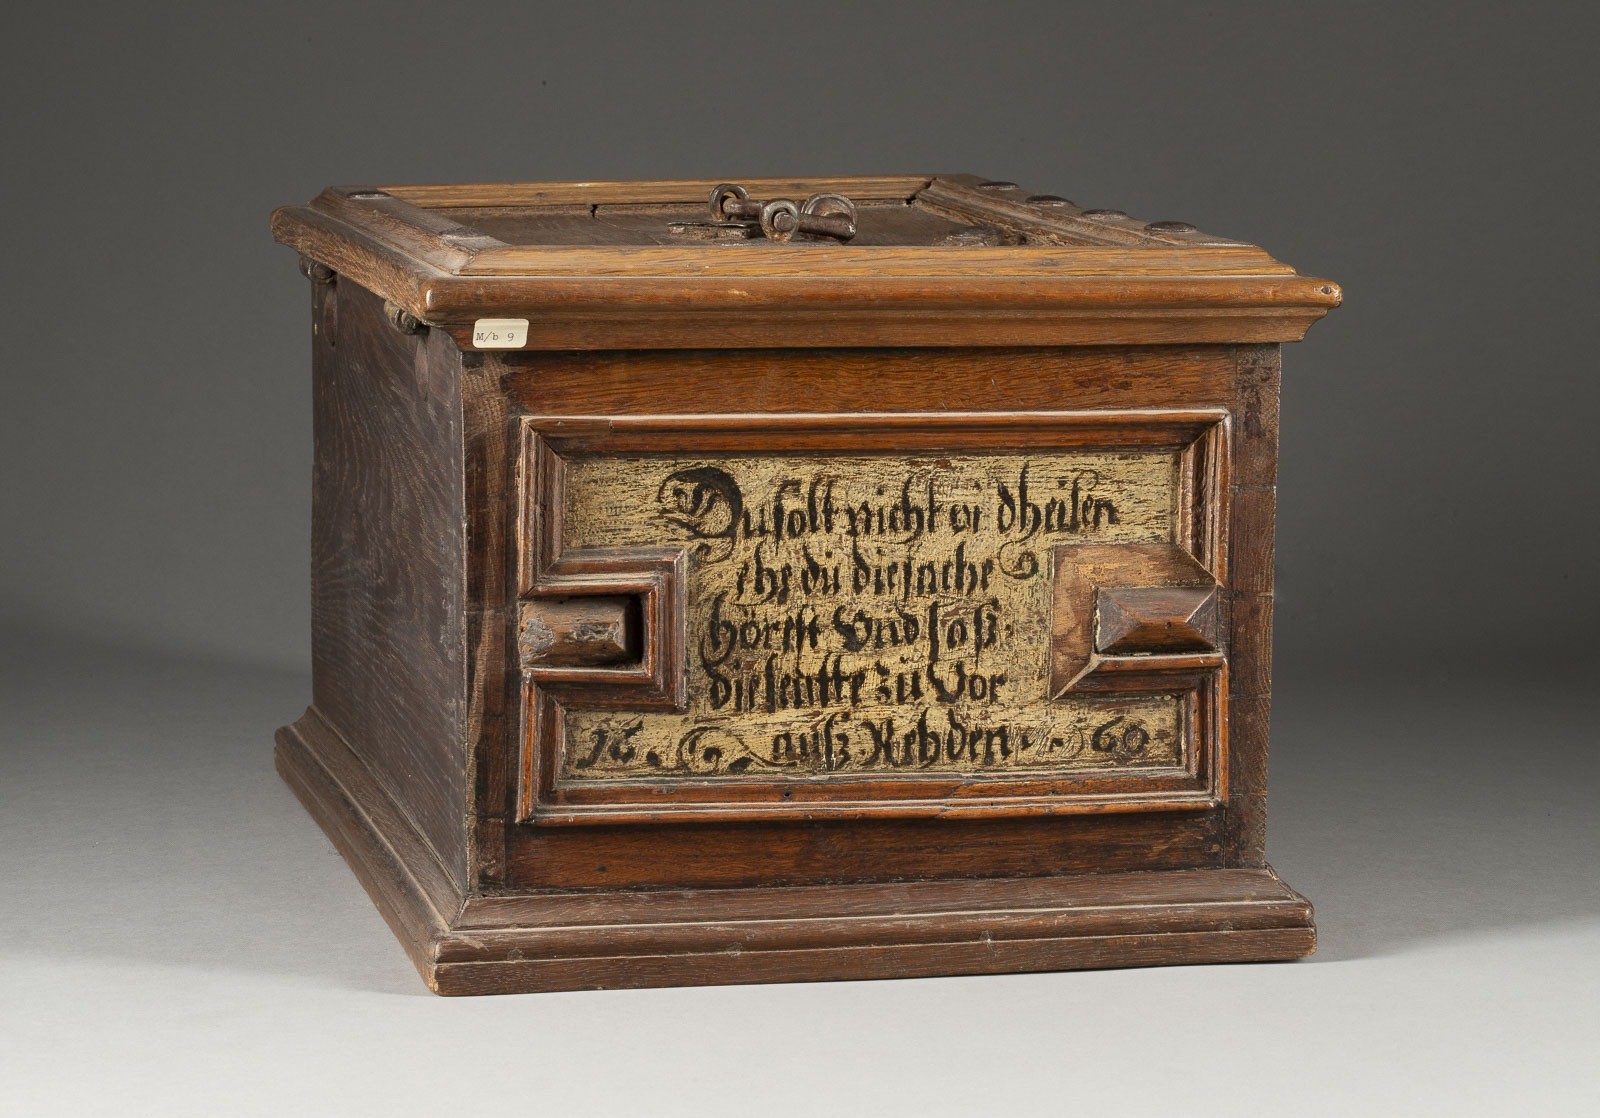 M/b 9
Du solt nicht or dheilen
ehe du die sache
hörest Vnd laß
die leutte zu Vor
16 auß Rehden 60